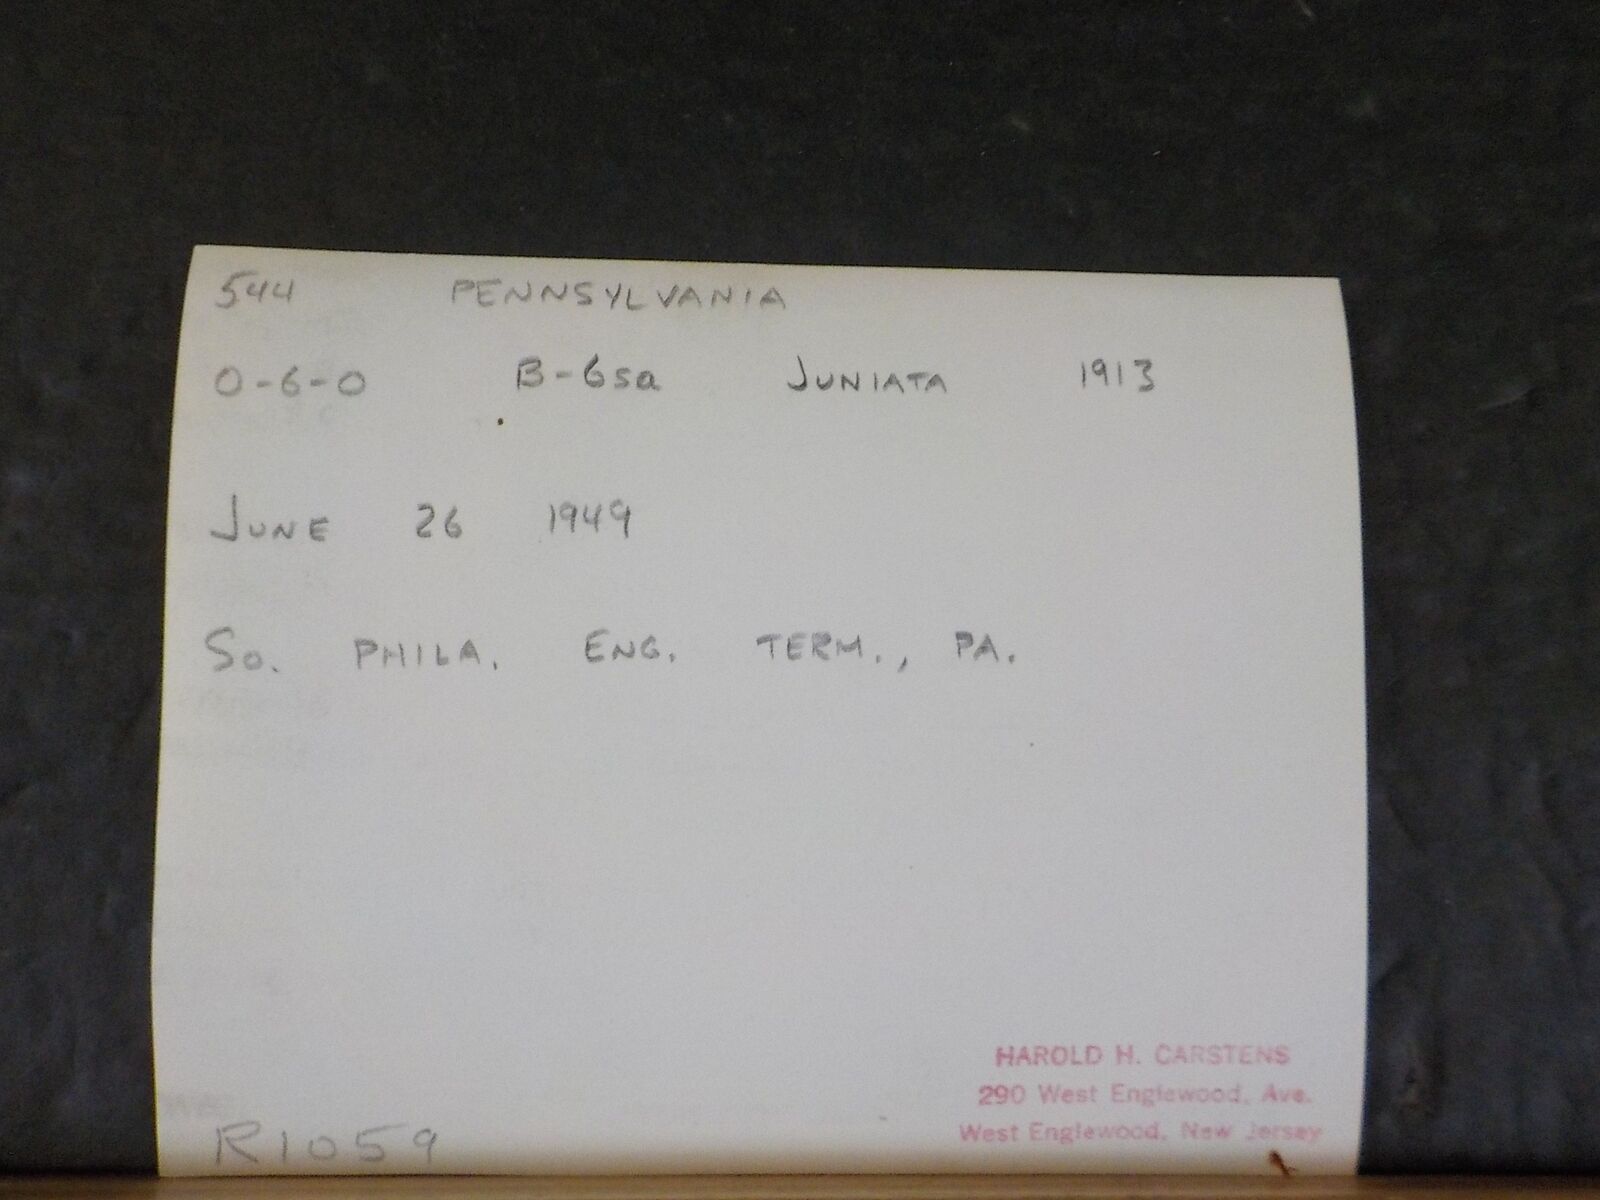 544 PENNSYLVANIA
0-6-0 B-6sa JUNIATA 1913
JUNE 26 1949
So. PHILA. ENG. TERM., PA.
HAROLD H. CARSTENS
290 West Englewood, Ave.
West Englewood, New Jersey
R1059